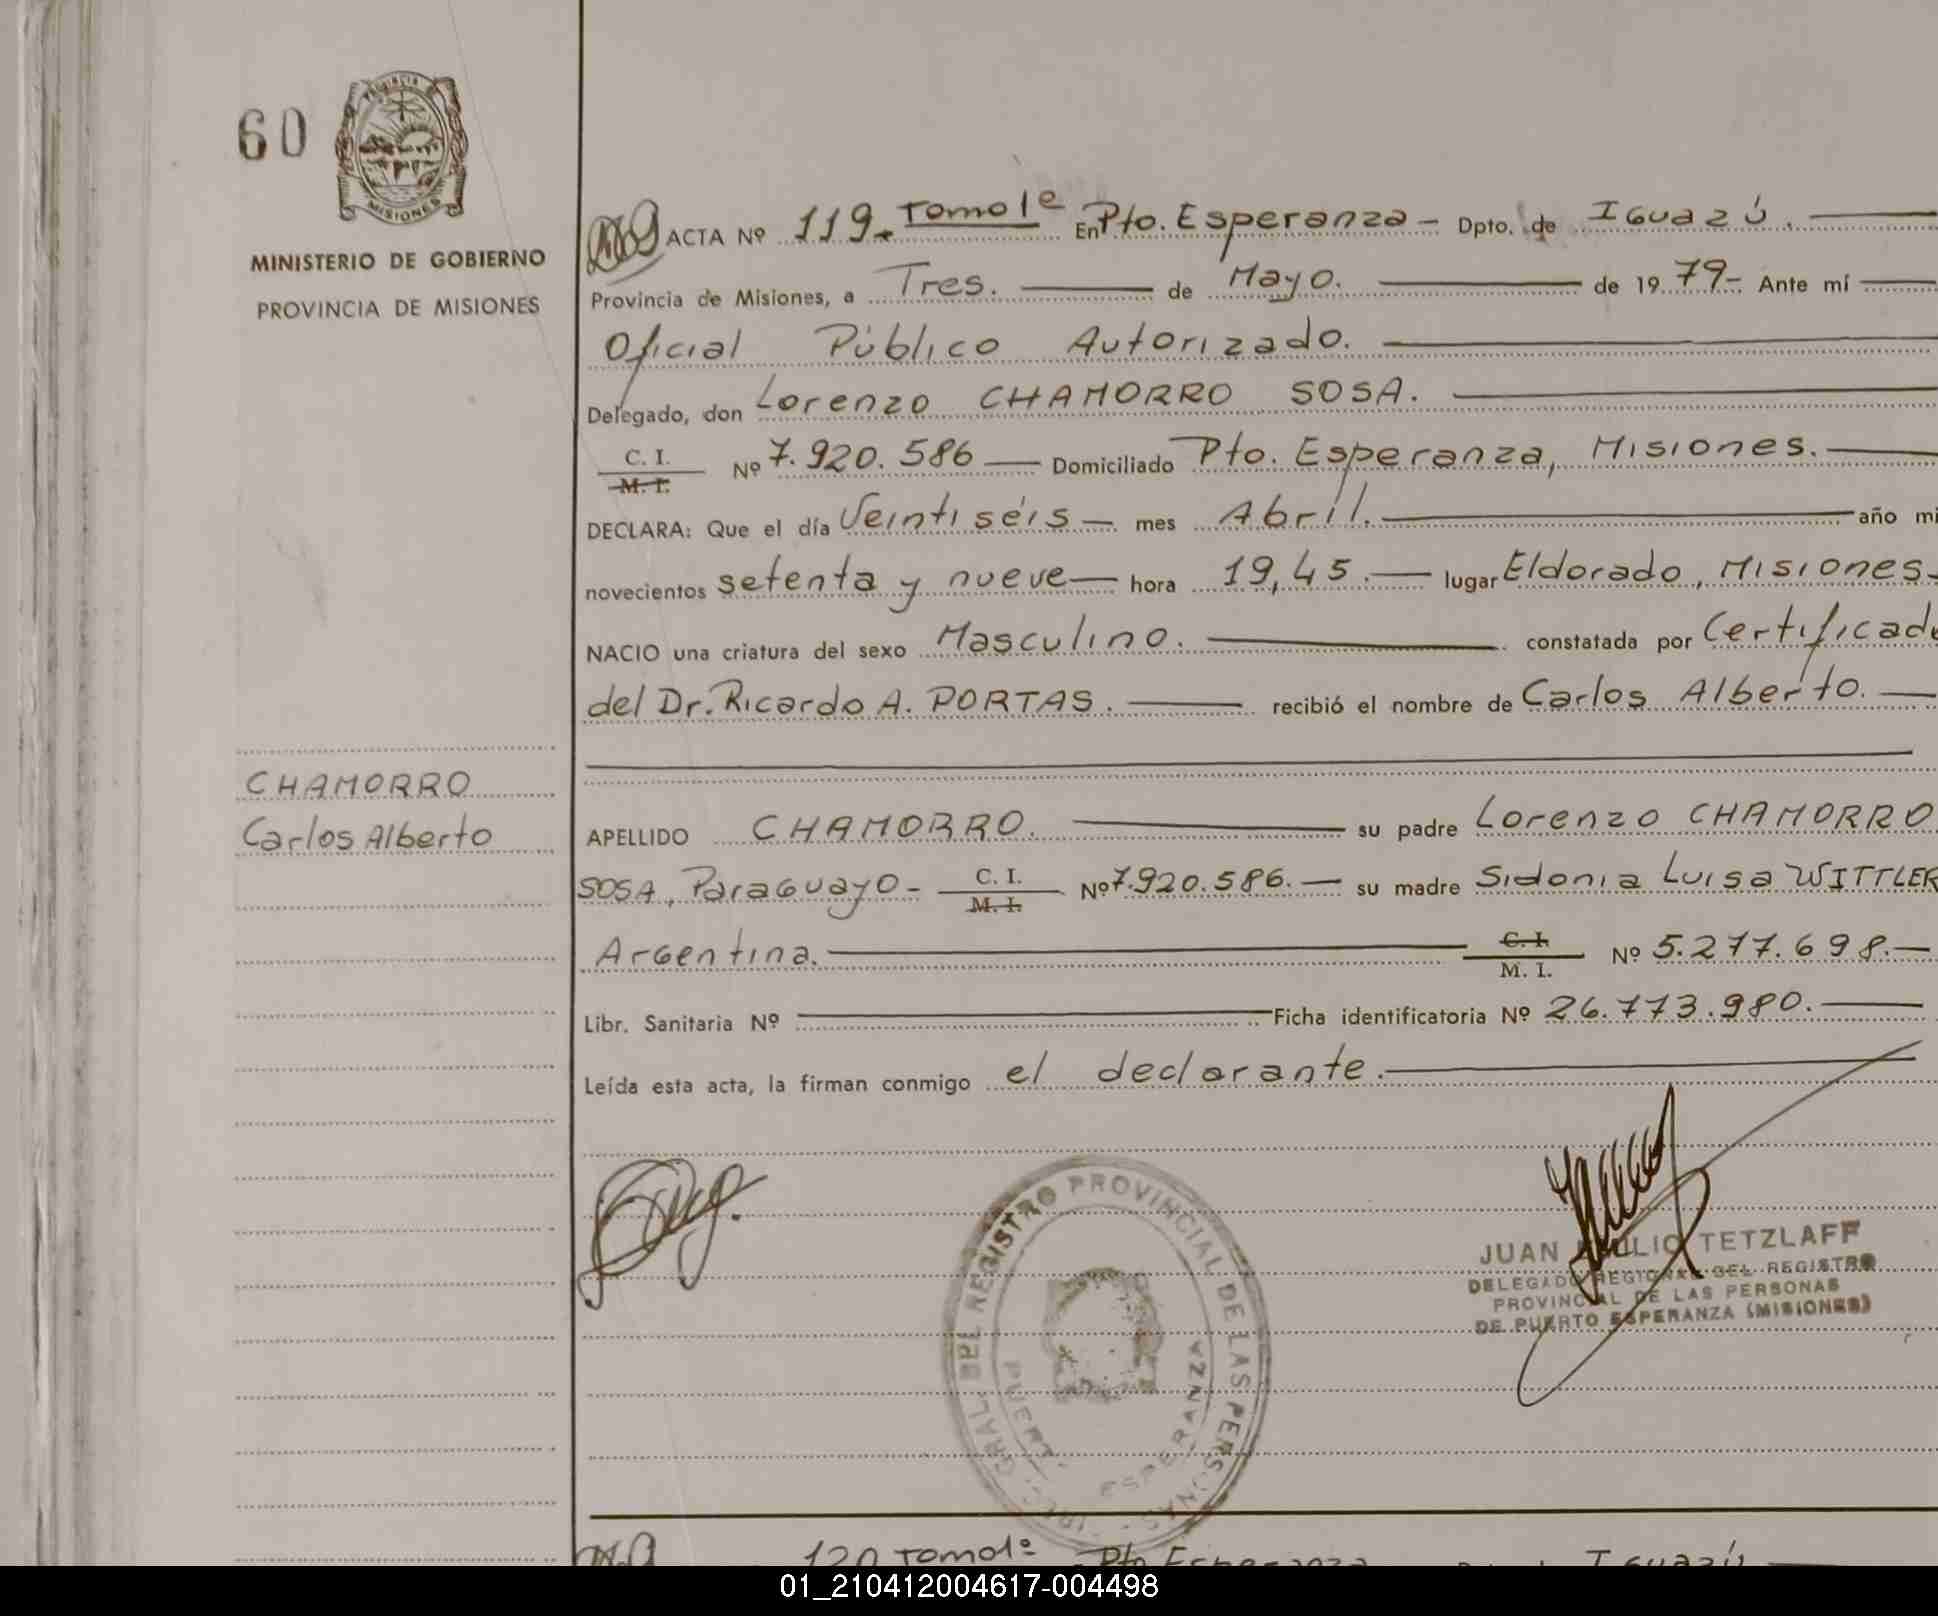 60
PROVINCIA
MISIONES
MINISTERIO DE GOBIERNO
PROVINCIA DE MISIONES
ACTA Nº 119. Tomo 1º En Pto. Esperanza - Dpto. de Iguazú.
Provincia de Misiones, a Tres. de Mayo. de 19 79- Ante mí
Oficial Público Autorizado.
Delegado, don Lorenzo CHAMORRO SOSA.
C. I.
M. I. Nº 7.920.586 Domiciliado Pto. Esperanza, Misiones.
DECLARA: Que el día Veintiséis mes Abril. año mi
novecientos setenta y nueve hora 19,45. lugar Eldorado, Misiones-
NACIO una criatura del sexo Masculino. constatada por Certificado
del Dr. Ricardo A. PORTAS. recibió el nombre de Carlos Alberto.
CHAMORRO
Carlos Alberto
APELLIDO CHAMORRO. su padre Lorenzo CHAMORRO
SOSA, Paraguayo- C. I. M. I. Nº 7.920.586. su madre Sidonia Luisa WITTLER
Argentina. C. I. M. I. Nº 5.277.698.-
Libr. Sanitaria Nº Ficha identificatoria Nº 26.773.980.
Leída esta acta, la firman conmigo el declarante.
GRAL. DEL REGISTRO PROVINCIAL DE LAS PERSONAS
ESPERANZA
JUAN TETZLAFF
DELEGADO REGIONAL DEL REGISTRO
PROVINCIAL DE LAS PERSONAS
DE PUERTO ESPERANZA (MISIONES)
120 Tomo 1º Pto Esperanza Iguazú
01_210412004617-004498